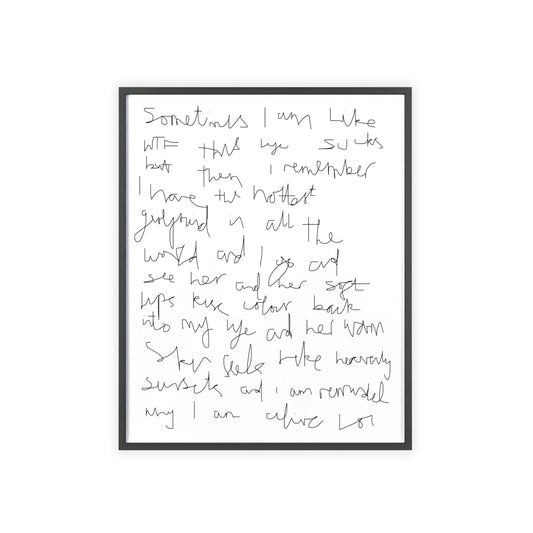 Sometimes I am like
WTF this life sucks
but then i remember
I have the hottest
girlfriend in all the
world and I go and
see her and her soft
lips kiss colour back
into my life and her warm
skin feels like heavenly
sunsets and i am reminded
why I am alive lol